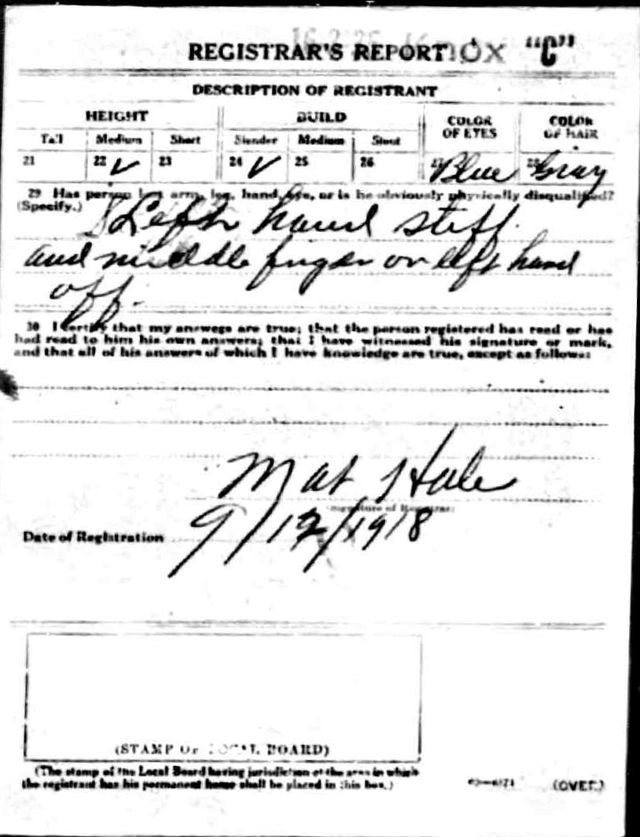 REGISTRAR'S REPORT "C"
DESCRIPTION OF REGISTRANT
HEIGHT BUILD COLOR OF EYES COLOR OF HAIR
Tall Medium Short Slender Medium Stout
21 22 ✓ 23 24 ✓ 25 26 27 Blue 28 Gray
29 Has person lost arm, leg, hand, eye, or is he obviously physically disqualified?
(Specify.) Left hand stiff
and middle finger on left hand
off.
30 I certify that my answers are true; that the person registered has read or has
had read to him his own answers; that I have witnessed his signature or mark,
and that all of his answers of which I have knowledge are true, except as follows:
Mat Hale
Signature of Registrar
Date of Registration 9/12/1918
(STAMP OF LOCAL BOARD)
(The stamp of the Local Board having jurisdiction of the area in which
the registrant has his permanent home shall be placed in this box.)
(OVER)